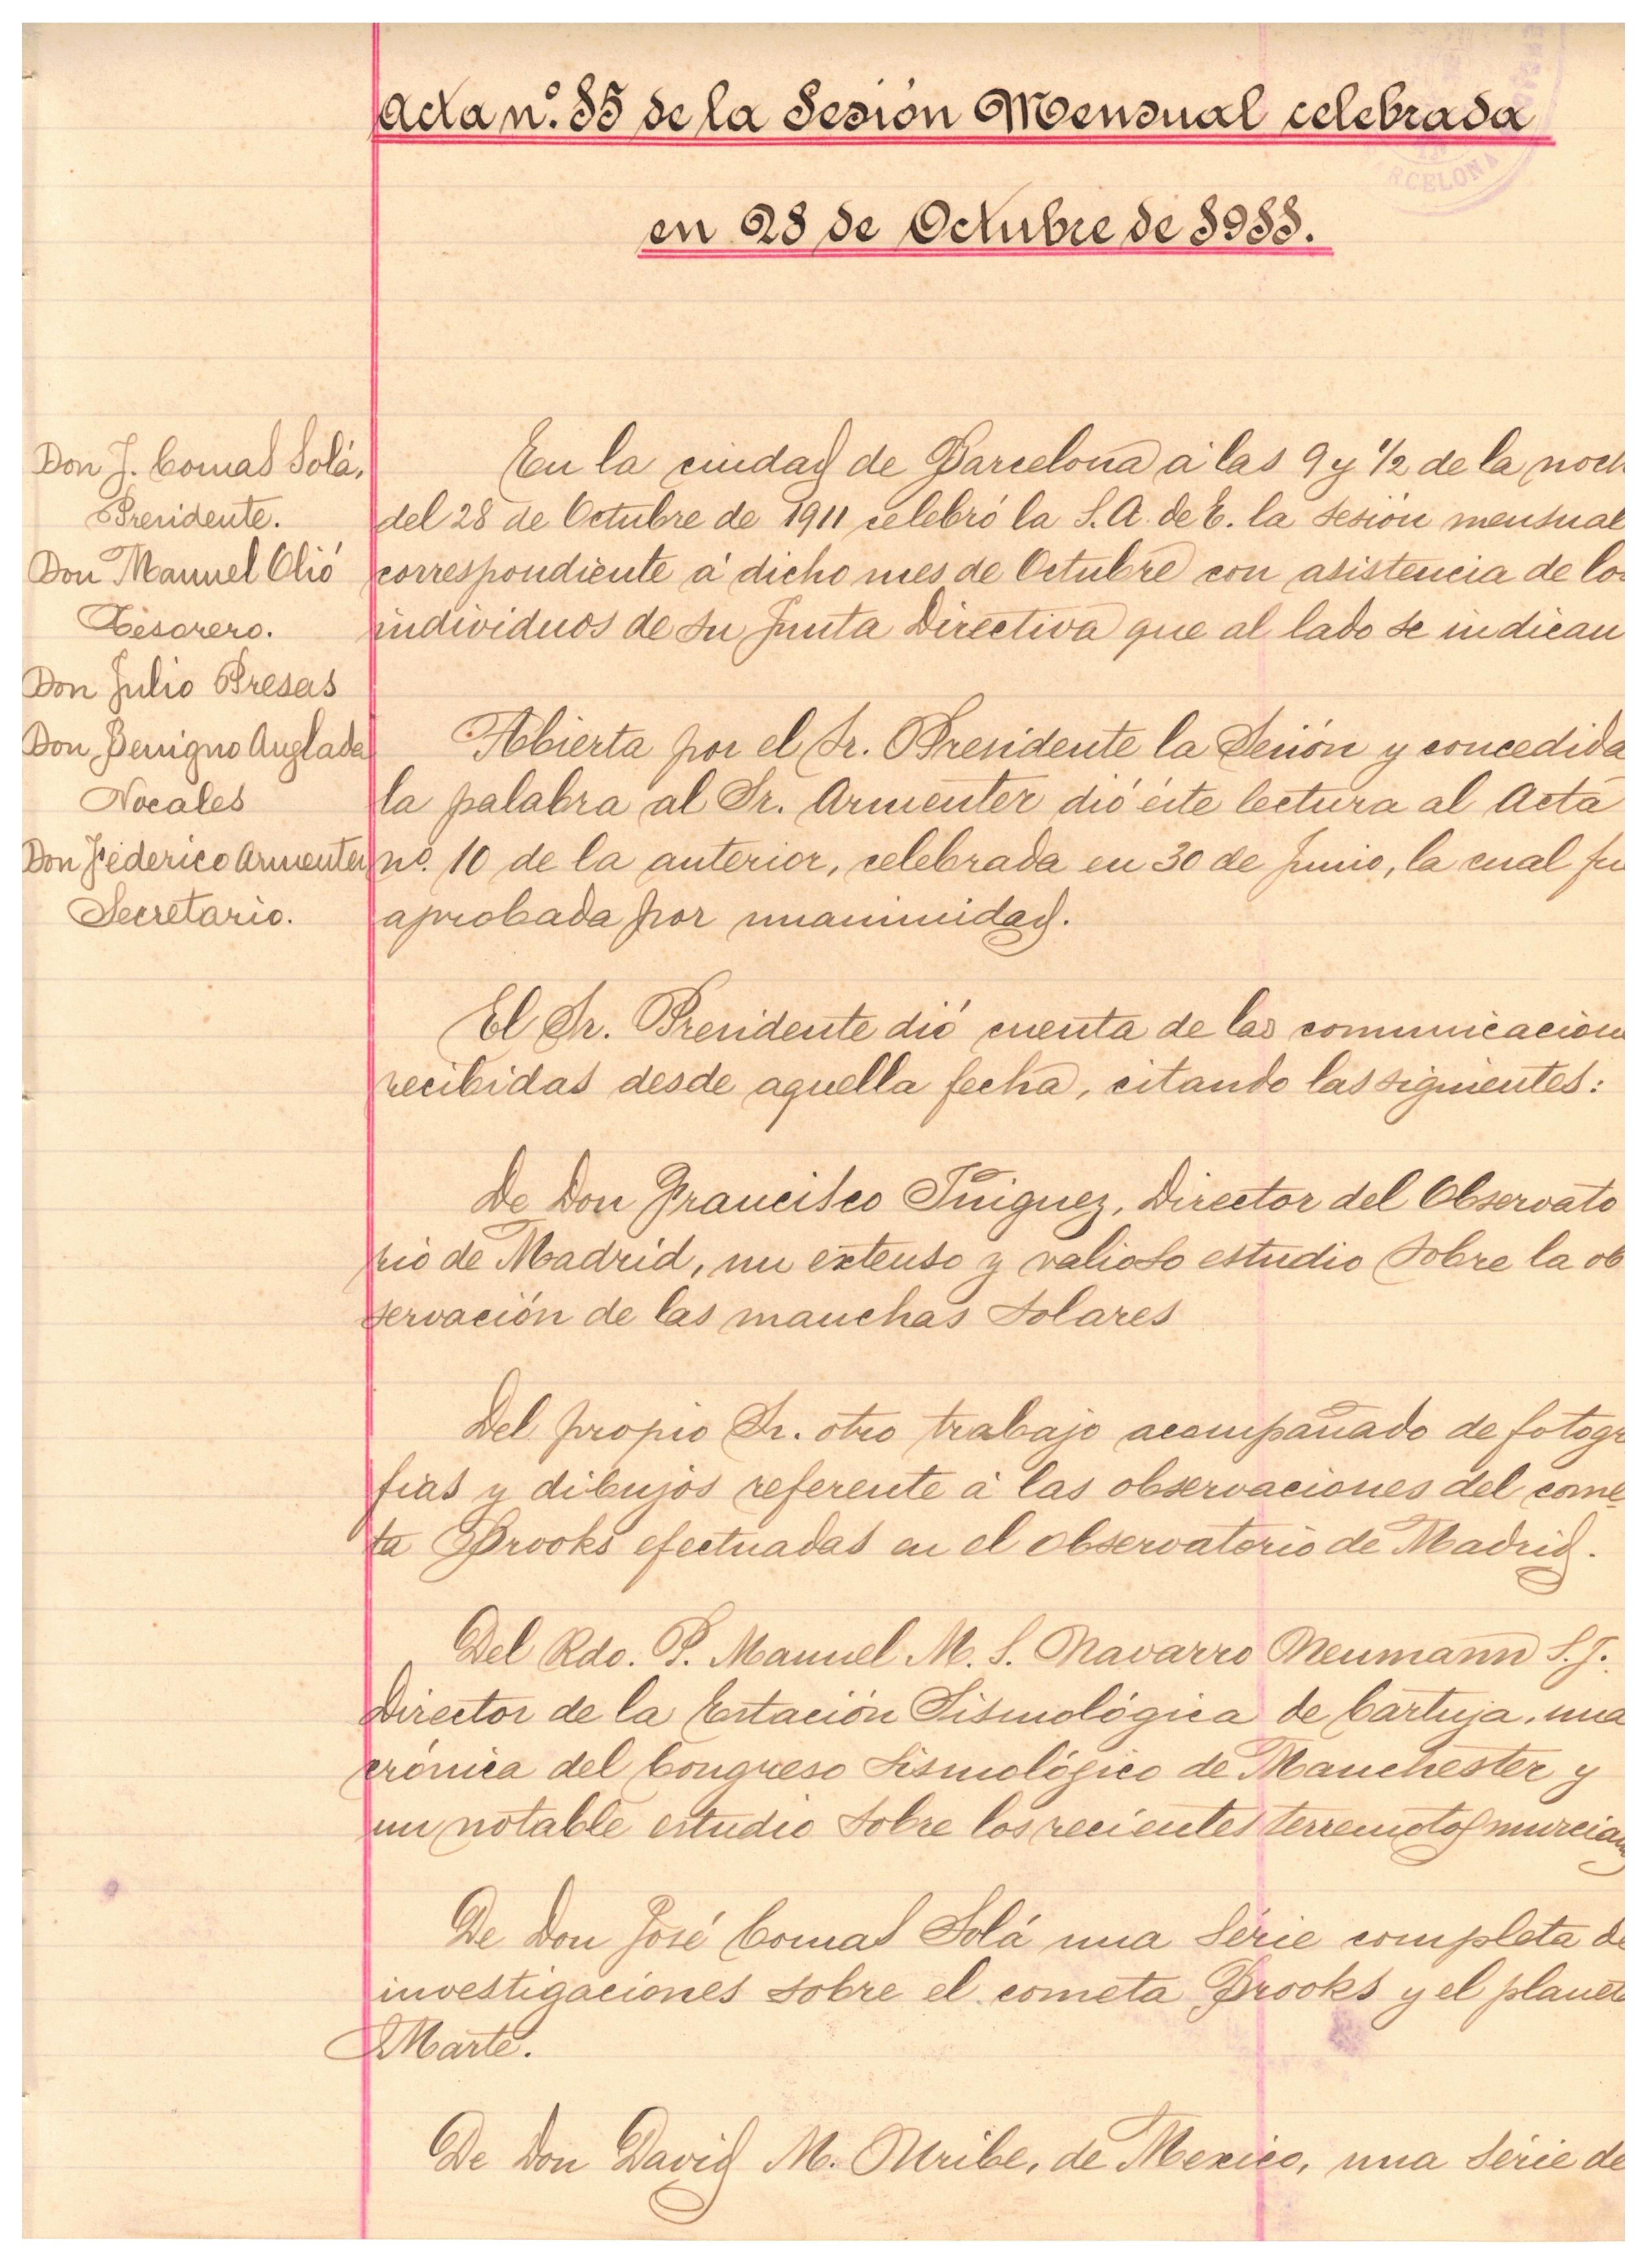 Acta n.º 11 de la Sesión Mensual celebrada
en 28 de Octubre de 1911.
RCELONA
Don J. Comas Solá,
Presidente.
Don Manuel Olió
Tesorero.
Don Julio Presas
Don Benigno Anglada
Vocales
Don Federico Armenter
Secretario.
En la ciudad de Barcelona á las 9 y 1/2 de la noch
del 28 de Octubre de 1911 celebró la S. A. de E. la sesión mensual
correspondiente á dicho mes de Octubre con asistencia de los
individuos de su Junta Directiva que al lado se indican
Abierta por el Sr. Presidente la Sesión y concedida
la palabra al Sr. Armenter dió éste lectura al Acta
nº. 10 de la anterior, celebrada en 30 de Junio, la cual fu
aprobada por unanimidad.
El Sr. Presidente dió cuenta de las comunicacion
recibidas desde aquella fecha, citando las siguientes:
De Don Francisco Iñiguez, Director del Observato
rio de Madrid, un extenso y valioso estudio sobre la ob
servación de las manchas solares
Del propio Sr. otro trabajo acompañado de fotogr
fias y dibujos referente á las observaciones del come
ta Brooks efectuadas en el observatorio de Madrid.
Del Rdo. P. Manuel M. S. Navarro Neumann S. J.
Director de la Estación Sismológica de Cartuja, una
crónica del Congreso sismológico de Manchester y
un notable estudio sobre los recientes terremotos murcian
De Don José Comas Solá una série completa de
investigaciones sobre el cometa Brooks y el planet
Marte.
De Don David M. Uribe, de Mexico, una série de